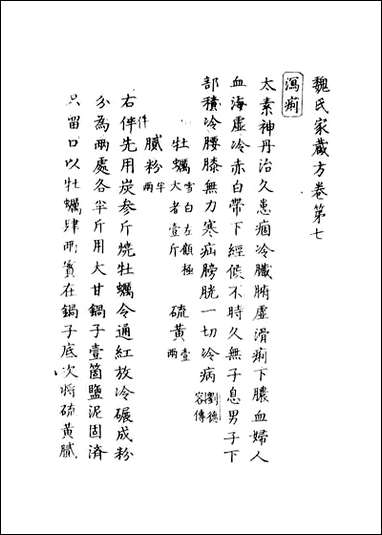 魏氏家藏方卷第七
瀉痢
太素神丹治久患痼冷臟腑虛滑痢下膿血婦人
血海虛冷赤白帶下經候不時久無子息男子下
部積冷腰膝無力寒疝膀胱一切冷病劉德容傳
牡蠣雪白左顧極大者壹斤 硫黃壹兩
膩粉半兩
右件先用炭叁斤燒牡蠣令通紅放冷碾成粉
分為兩處各半斤用大甘鍋子壹箇鹽泥固濟
只留口以牡蠣肆兩實在鍋子底次將硫黃膩